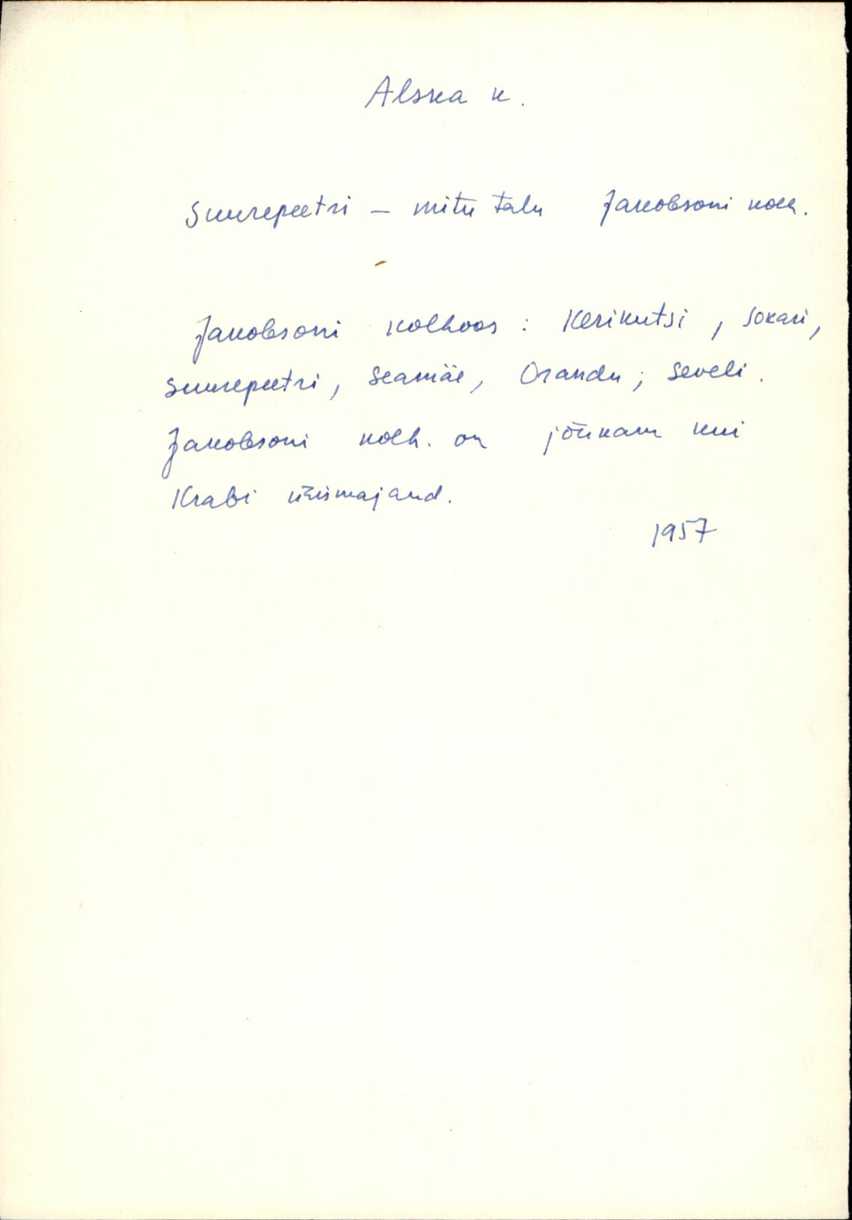 Alska k.
Suurepeetri – mitu talu Jakobsoni kolh.
Jakobsoni kolhoos : Kerikutsi, Sokari,
Suurepeetri, Seamäe, Orandu, Seveli.
Jakobsoni kolh. on jõukam kui
Krabi ühismajand.
1957